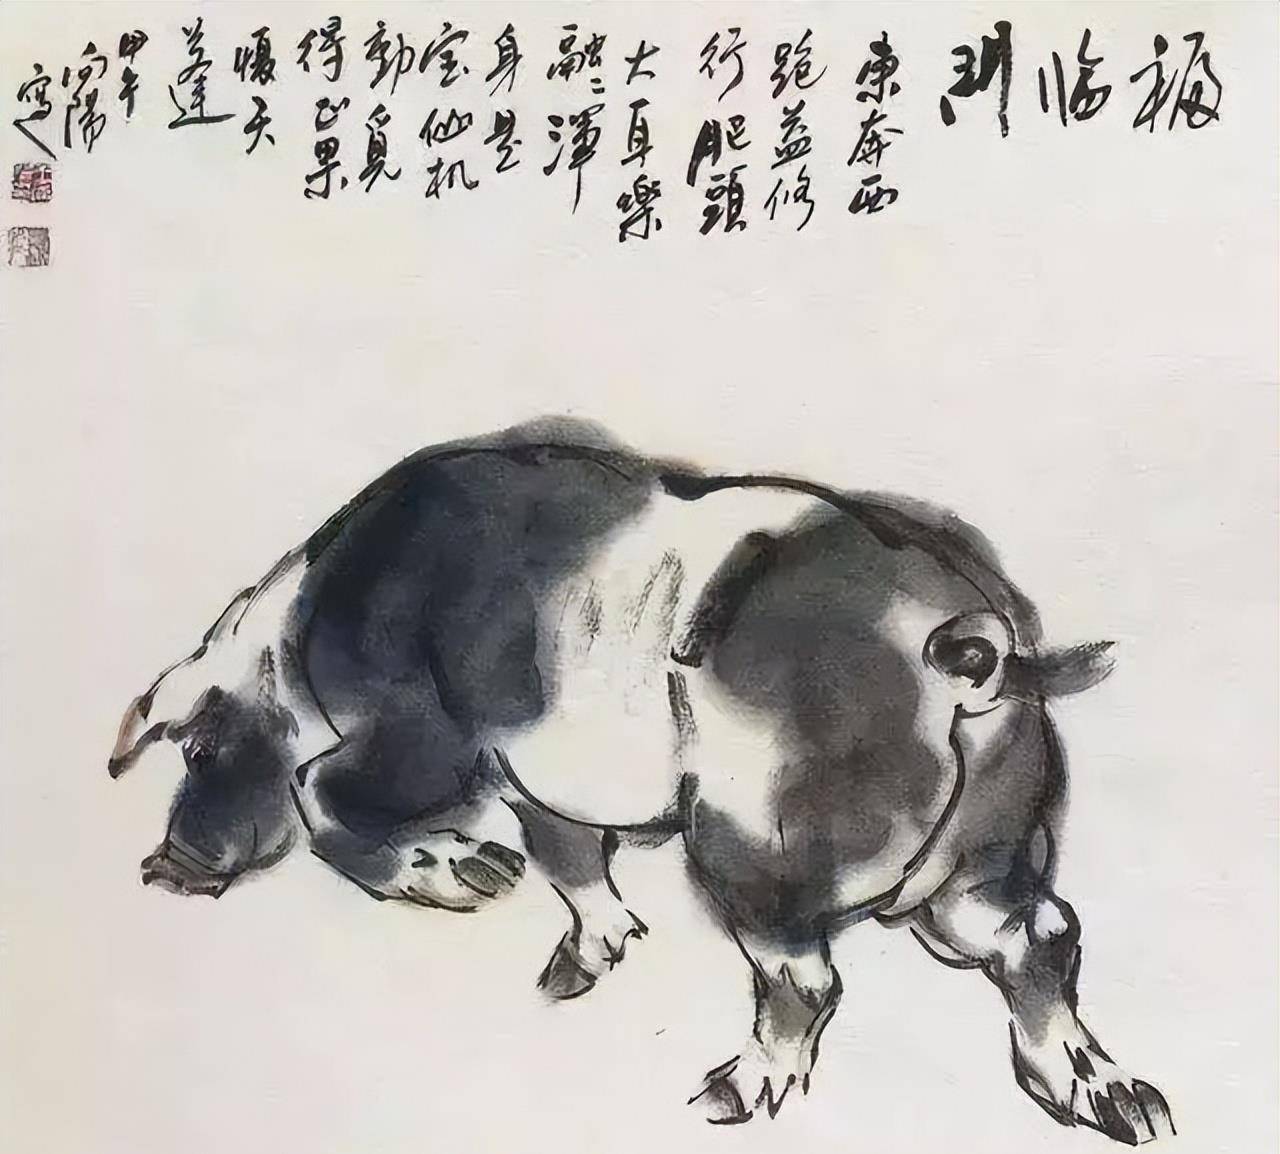 福临門
東奔西
跑益修
行肥頭
大耳樂
融〻渾
身是
宝仙机
動覓
得正果
天
蓬
甲午
向陽
寫